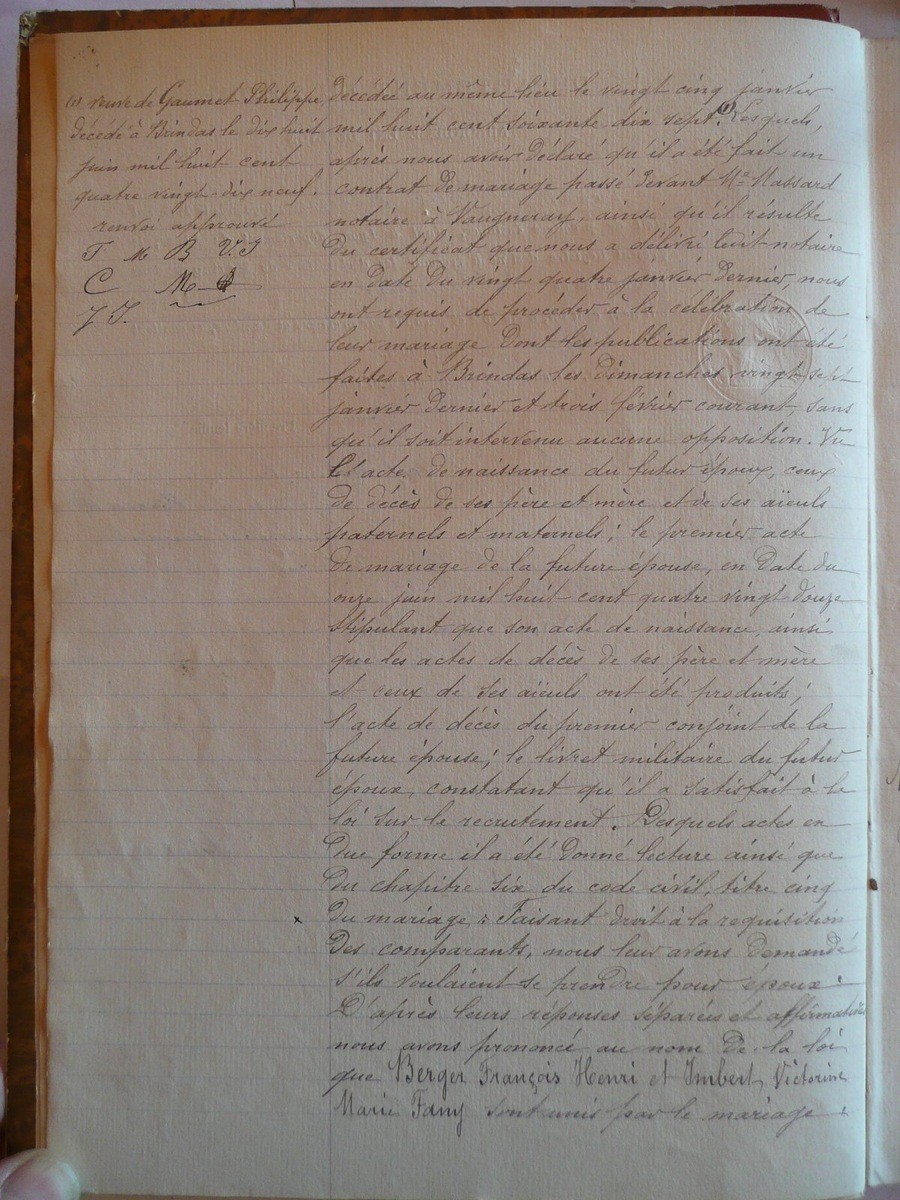 (1) veuve de Gaumet Philippe,
décédé à Brindas le dix huit
juin mil huit cent
quatre vingt-dix neuf.
renvoi approuvé
F M B V.I
C M
J J.
décédée au même lieu le vingt cinq janvier
mil huit cent soixante dix sept. (1) Lesquels,
après nous avoir déclaré qu'il a été fait un
contrat de mariage passé devant Me Massard
notaire à Vaugneray, ainsi qu'il résulte
du certificat que nous a délivré ledit notaire
en date du vingt quatre janvier dernier, nous
ont requis de procéder à la célébration de
leur mariage dont les publications ont été
faites à Brindas les dimanches vingt-sept
janvier dernier et trois février courant, sans
qu'il soit intervenu aucune opposition. Vu
l'acte de naissance du futur époux, ceux
de décès de ses père et mère et de ses aïeuls
paternels et maternels; le premier acte
de mariage de la future épouse, en date du
onze juin mil huit cent quatre vingt douze
stipulant que son acte de naissance, ainsi
que les actes de décès de ses père et mère
et ceux de ses aïeuls ont été produits;
l'acte de décès du premier conjoint de la
future épouse; le livret militaire du futur
époux, constatant qu'il a satisfait à la
loi sur le recrutement. Desquels actes en
due forme il a été donné lecture ainsi que
du chapitre six du code civil, titre cinq
du mariage : Faisant droit à la requisition
des comparants, nous leur avons demandé
s'ils voulaient se prendre pour époux.
D'après leurs réponses séparées et affirmatives
nous avons prononcé au nom de la loi
que Berger François Henri et Imbert, Victorine
Marie Fany sont unis par le mariage.